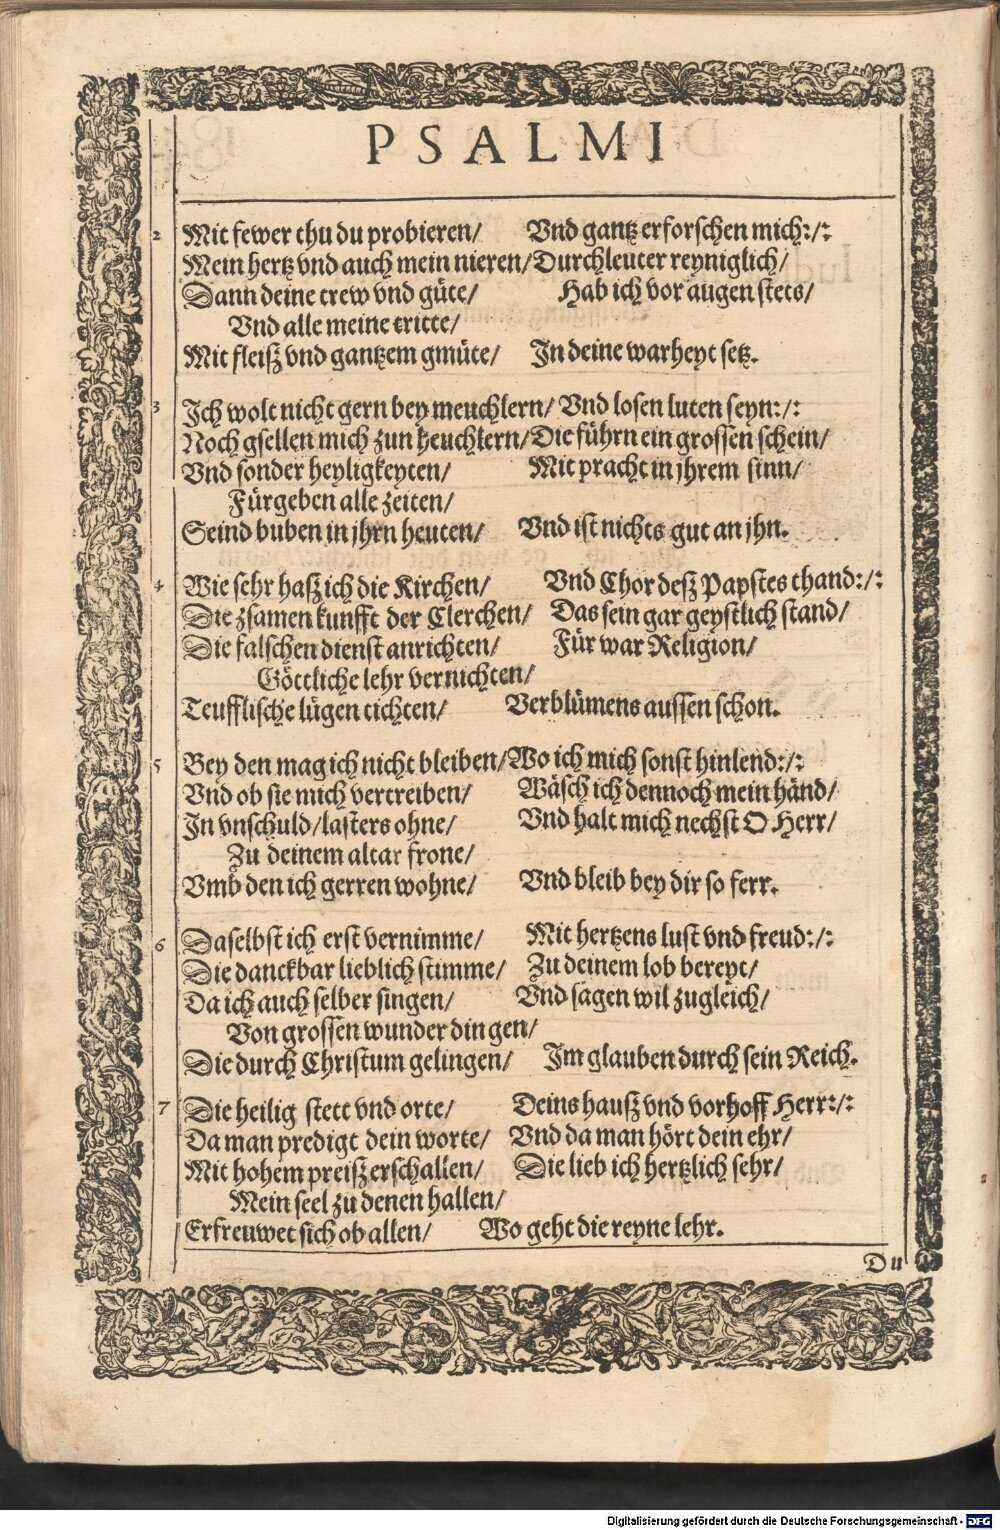 PSALMI
2 Mit fewer thu du probieren/ Vnd gantz erforschen mich:/:
Mein hertz vnd auch mein nieren/ Durchleuter reyniglich/
Dann deine trew vnd güte/ Hab ich vor augen stets/
Vnd alle meine tritte/
Mit fleisz vnd gantzem gmüte/ In deine warheyt setz.
3 Ich wolt nicht gern bey meuchlern/ Vnd losen luten seyn:/:
Noch gsellen mich zun heuchlern/ Die führn ein grossen schein/
Vnd sonder heyligkeyten/ Mit pracht in jhrem sinn/
Fürgeben alle zeiten/
Seind buben in jhrn heuten/ Vnd ist nichts gut an jhn.
4 Wie sehr hasz ich die Kirchen/ Vnd Chor desz Papstes thand:/:
Die zsamen kunfft der Clerchen/ Das sein gar geystlich stand/
Die falschen dienst anrichten/ Für war Religion/
Göttliche lehr vernichten/
Teufflische lügen tichten/ Verblümens aussen schon.
5 Bey den mag ich nicht bleiben/ Wo ich mich sonst hinlend:/:
Vnd ob sie mich vertreiben/ Wäsch ich dennoch mein händ/
In vnschuld/ lasters ohne/ Vnd halt mich nechst O Herr/
Zu deinem altar frone/
Vmb den ich gerren wohne/ Vnd bleib bey dir so ferr.
6 Daselbst ich erst vernimme/ Mit hertzens lust vnd freud:/:
Die danckbar lieblich stimme/ Zu deinem lob bereyt/
Da ich auch selber singen/ Vnd sagen wil zugleich/
Von grossen wunder dingen/
Die durch Christum gelingen/ Im glauben durch sein Reich.
7 Die heilig stett vnd orte/ Deins hausz vnd vorhoff Herr:/:
Da man predigt dein worte/ Vnd da man hört dein ehr/
Mit hohem preisz erschallen/ Die lieb ich hertzlich sehr/
Mein seel zu denen hallen/
Erfreuwet sich ob allen/ Wo geht die reyne lehr.
Du
Digitalisierung gefördert durch die Deutsche Forschungsgemeinschaft - DFG